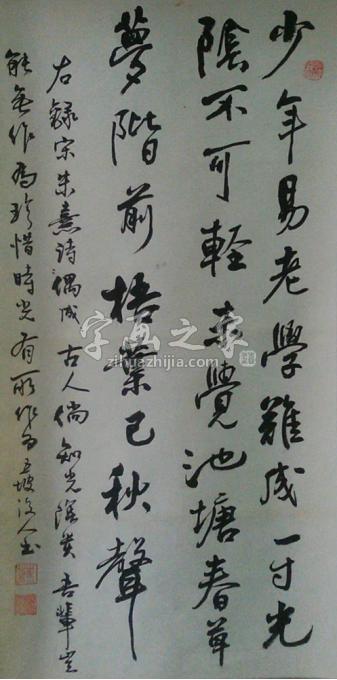 少年易老學難成一寸光
陰不可輕未覺池塘春草
夢階前梧葉已秋聲
右錄宋朱熹詩偶成 古人倘知光陰貴 吾輩豈
能無作為珍惜時光有所作為 坡後人書
字画之家
zihuazhijia.com